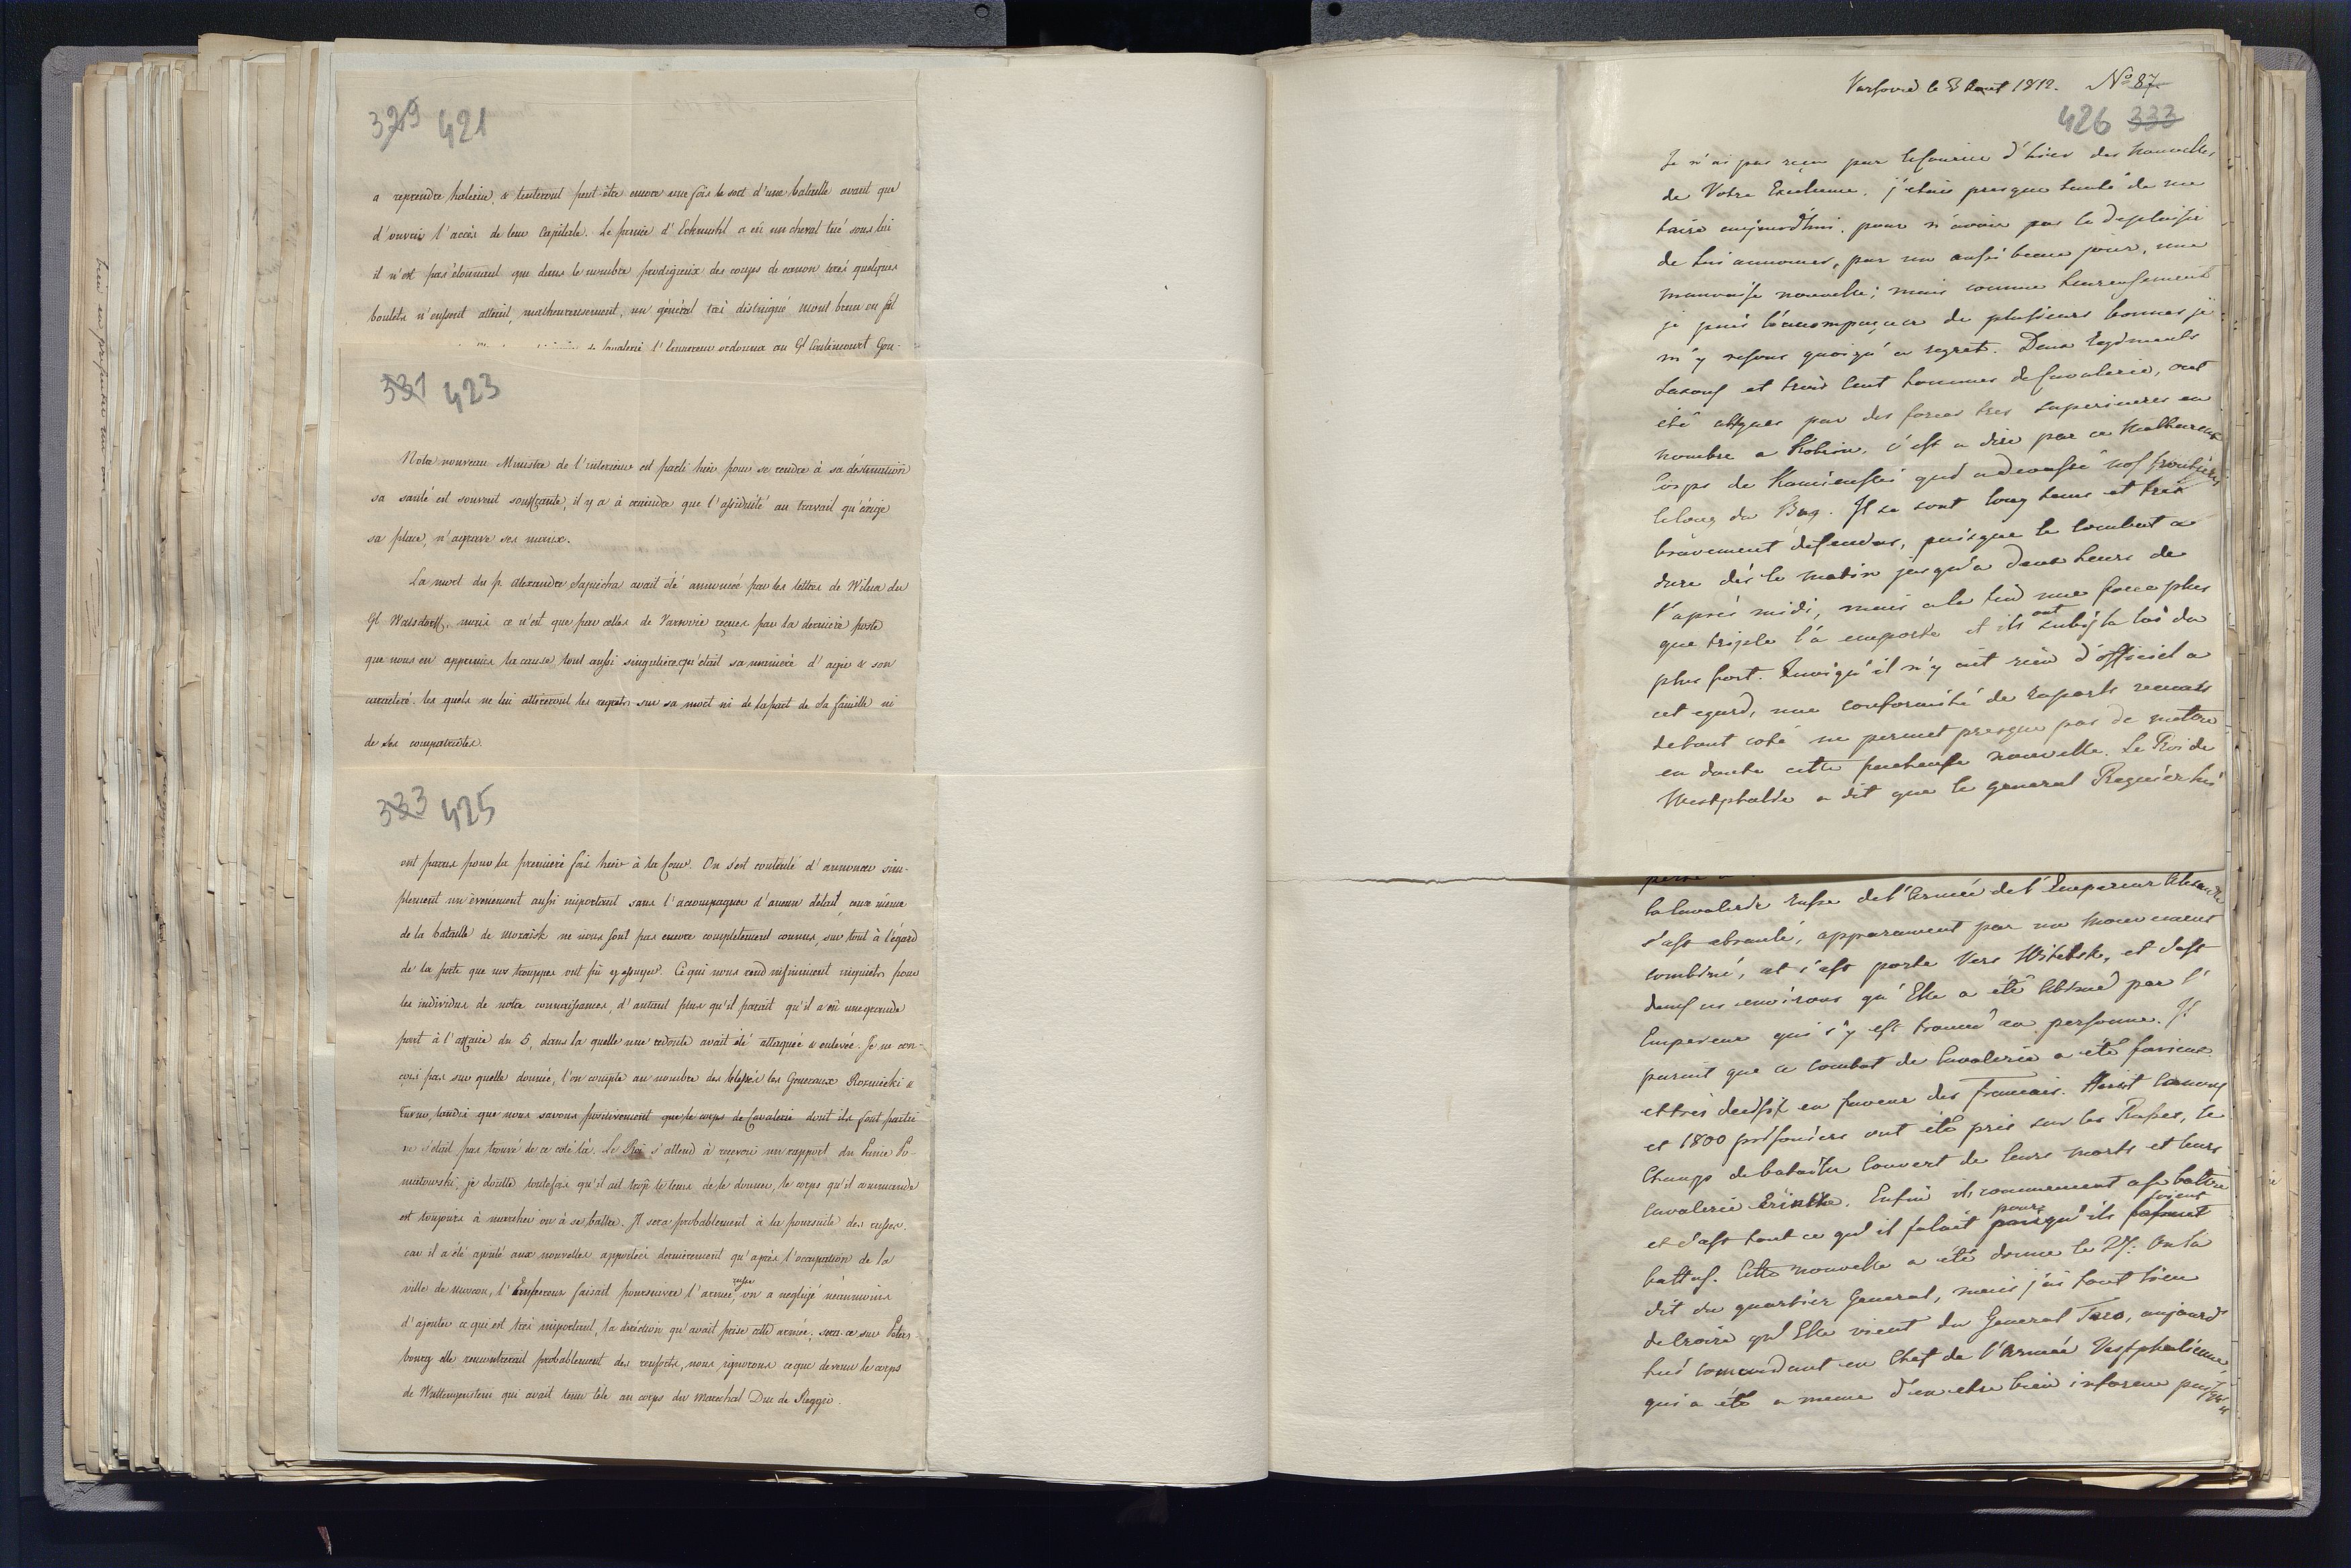 329 421
a reprendre haleine, & tenteront peut être encore une fois le sort d'une bataille avant que
d'ouvrir l'accès de leur Capitale. Le prince d'Eckmuhl a eû un cheval tué sous lui
il n'est pas étonnant que dans le nombre prodigieux des coups de canon tirés quelques
boulets n'eussent atteint, malheureusement, un général très distingué Mont brun en fut
de Cavalerie l'Empereur ordonna au Gl Caulincourt Gou-
331 423
Notre nouveau Ministre de l'interieur est parti hier pour se rendre à sa déstination
sa santé est souvent souffrante, il y a à craindre que l'assiduité au travail qu'exige
sa place, n'agrave ses maux.
La mort du p. Alexandre Sapieha avait été annoncé par les lettres de Wilna du
Gl Walsdorff, mais ce n'est que par celles de Varsovie reçues par la derniere poste
que nous en apprimes la cause tout aussi singuliere, qu'était sa maniere d'agir & son
caractere. les quels ne lui attireront les regrets sur sa mort ni de la part de Sa famille ni
de Ses compatriotes.
333 425
ont parus pour la premiere fois hier à la Cour. On s'est contenté d'annoncer sim-
plement un évenement aussi important sans l'acompagner d'aucun détail, ceux même
de la bataille de Mozaisk ne nous sont pas encore completement connus, sur tout à l'égard
de la perte que nos trouppes ont pû y essuyer. Ce qui nous rend infiniment inquiets pour
les individus de notre connaissance, d'autant plus qu'il parait qu'il a eû une grande
part à l'affaire du 5, dans la quelle une redoute avait été attaquée & enlevée. Je ne con-
çois pas sur quelle donnée, l'on compte au nombre des blessés les Generaux Rozniecki &
Turno, tandis que nous savons positivement que le corps de Cavalerie dont ils font partie
ne s'était pas trouvé de ce coté là. Le Roi s'attend à reçevoir un rapport du Prince Po-
niatowski, je doutte toutefois qu'il ait trop le tems de le donner, le corps qu'il commande
est toujours à marcher ou à se battre. Il sera probablement à la poursuite des russes.
car il a été ajouté aux nouvelles apportées dernierement qu'après l'occupation de la
ville de Moscou, l'Empereur faisait poursuivre l'armée russe, on a negligé néanmoins
d'ajouter ce qui est très important, la diréction qu'avait prise cette armée; sera-ce sur Peters-
bourg elle rencontrerait probablement des renforts, nous ignorons ce que devenu le corps
de Wittengenstein qui avait tenu tête au corps du Marechal Duc de Reggio.
Varsovie le 3 Aout 1812. No 87
426 333
Je n'ai pas reçu par le Courier d'hier des Nouvelles
de Votre Excellence. j'etais presque tenté de me
taire aujourd'hui. pour n'avoir pas le deplaisir
de lui annoncer, par un aussi beau jour, une
mauvaise nouvelle; mais comme heureusement
je puis l'acompagner de plusieurs bonnes je
m'y resous quoiqu'a regret. Deux Regiments
Saxons et trois Cent hommes de Cavalerie, ont
été attques par des forces tres superieures en
nombre a Kobrin, c'est a dire par ce Malheureux
Corps de Kamienski qui a devansé nos frontières
le long du Bug. Il se sont long tems et très
bravement defendus, puisque le Combat a
duré dès le matin jusqu'a deux heurs de
l'après midi, mais a la fin une force plus
que triple l'a emporté et ils ont subis la loi du
plus fort. Quoiqu'il n'y ait rien d'officiel a
cet egard, une conformité de raports
de tout coté ne permet presque pas de mettre
en doute cette facheuse nouvelle. Le Roi de
Westphalie a dit que le general Regnier lui
la Cavalerie Russe de l'Armée de l'Empereur Alexandre
s'est ebranlé, apparament par un Mouvement
combiné, et s'est porté Vers Witebsk, et c'est
dans ces environs qu'Elle a été abimé par l'
Empereur qui s'y est trouvé en personne. Il
parait que ce Combat de Cavalerie a été furieux
et très decisif en faveur des francais. Canons
et 1800 prisoniers ont été pris sur les Russes, le
Champ de bataille Couvert de leurs morts et leurs
Cavalerie . Enfin ils commencent a se battre
et c'est tout ce qu'il falait pour qu'ils soient
battus. Cette nouvelle a été donné le 27. On la
dit du quartier General, mais j'ai tout lieu
de croire qu'Elle vient du General , aujourd'
hui Comendant en Chef de l'Armée Vestphalienne,
qui a été a meme d'en etre bien informé